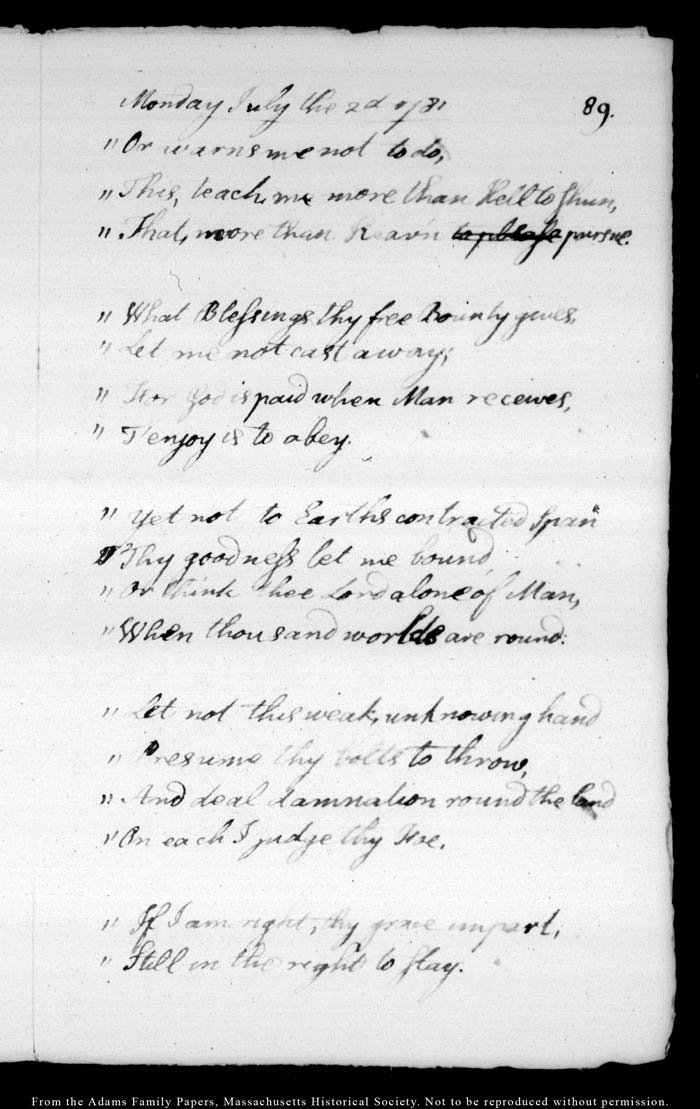 Monday July the 2d 1781
89.
" Or warns me not to do,
" This, teach me more than Hell to shun,
" That, more than Heav'n to please pursue.
" What Blessings thy free Bounty gives,
" Let me not cast away;
" For God is paid when Man receives,
" T'enjoy is to obey.
" Yet not to Earths contracted Span
" Thy goodness let me bound,
" Or think thee Lord alone of Man,
" When thousand worlds are round:
" Let not this weak, unknowing hand
" Presume thy bolts to throw,
" And deal damnation round the land
" On each I judge thy Foe.
" If I am right, thy grace impart,
" Still in the right to stay.
From the Adams Family Papers, Massachusetts Historical Society. Not to be reproduced without permission.